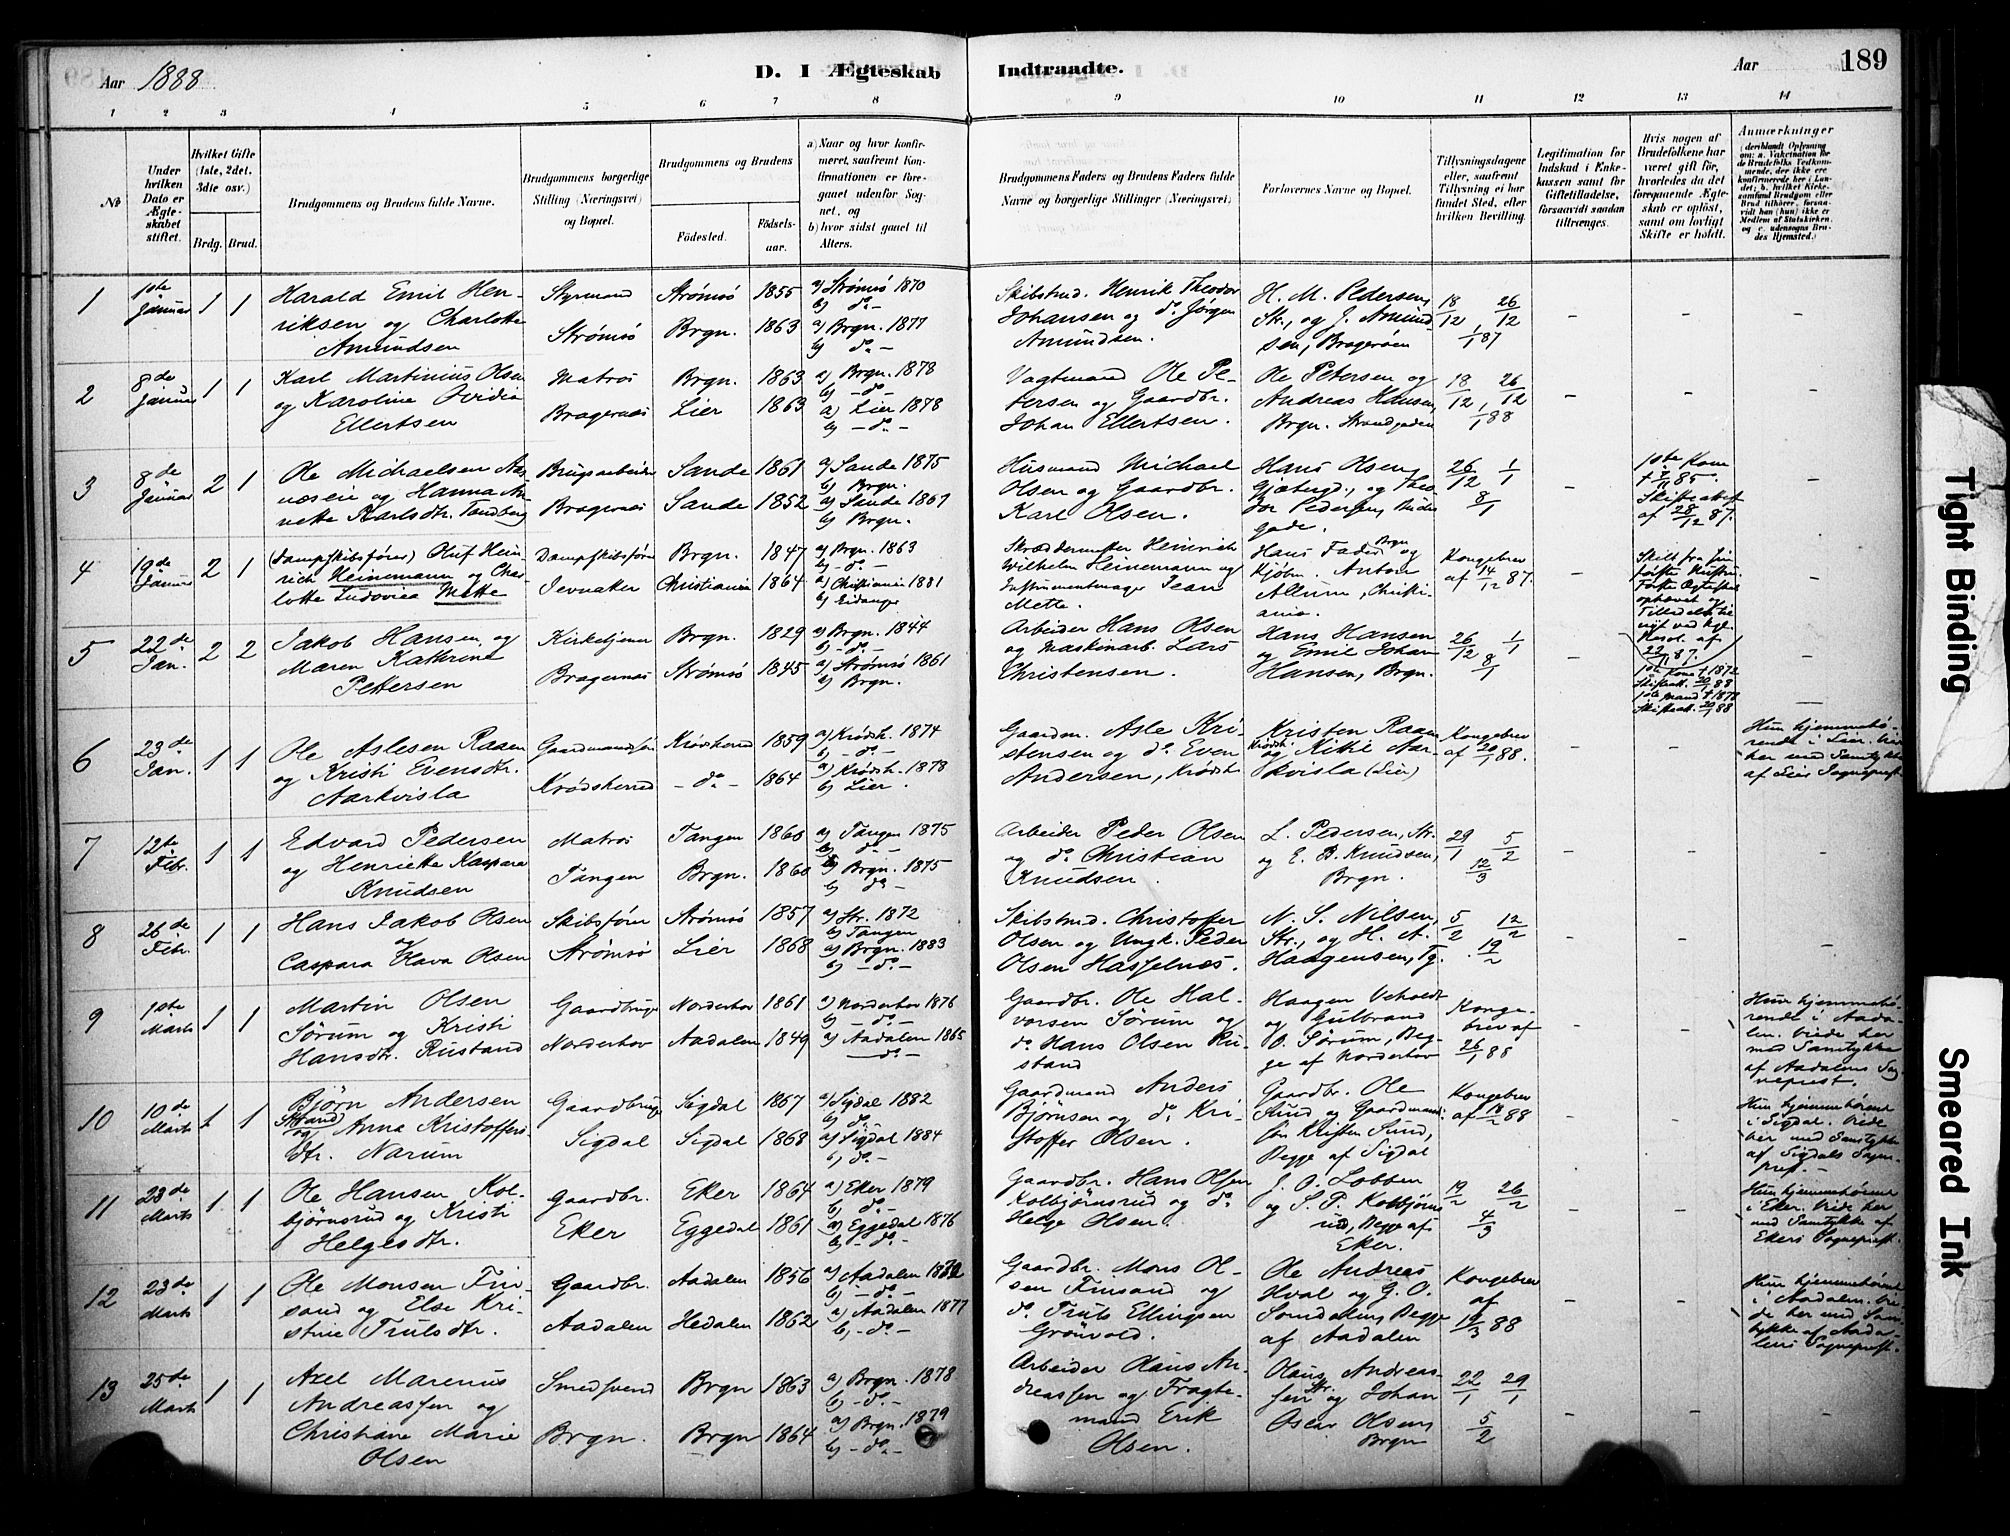 Aar 1888
D. I Ægteskab
Indtraadte.
Aar
189
1 2 3 4 5 6 7 8
9 10 11 12 13 14
№
Under hvilken Dato er Ægteskabet stiftet.
Hvilket Gifte (1ste, 2det, 3die osv.)
Brdg. Brud.
Brudgommens og Brudens fulde Navne.
Brudgommens borgerlige Stilling (Næringsvei) og Bopæl.
Brudgommens og Brudens
Födested.
Födselsaar.
a) Naar og hvor konfirmeret, saafremt Konfirmationen er foregaaet udenfor Sognet, og
b) hvor sidst gaaet til Alters.
Brudgommens Faders og Brudens Faders fulde Navne og borgerlige Stillinger (Næringsvei)
Forlovernes Navne og Bopæl.
Tillysningsdagene eller, saafremt Tillysning ei har fundet Sted, efter hvilken Bevilling.
Legitimation for Indskud i Enkekassen samt for Giftetilladelse, forsaavidt saadan tiltrænges.
Hvis nogen af Brudefolkene har været gift för, hvorledes da det foregaaende Ægteskab er oplöst, samt om lovligt Skifte er holdt.
Anmærkninger
1 1ste Januar 1 1
Harald Emil Hen-
riksen og Charlotte
Amundsen
Styrmand
Strömsö
Strömsö 1855
Brgn. 1863
a) Strömsö 1870
b) do -
a) Brgn. 1877
b) do -
Skibstmd. Henrik Theodor
Johansen og do Jörgen
Amundsen.
H. M. Pedersen,
Str., og J. Amund
sen, Bragerøen
18/12 26/12
1/1 87
2 8de Januar 1 1
Karl Martinius Olsen
og Karoline Ovidia
Ellertsen
Matros
Bragernæs
Brgn. 1863
Lier 1863
a) Brgn. 1878
b) - do -
a) Lier 1878
b) - do -
Vagtmand Ole Pe-
tersen og Gaardbr.
Johan Ellertsen.
Ole Petersen og
Andreas Hansen,
Brgn. Strandgaden
18/12 26/12
1/1 88
3 8de Januar 2 1
Ole Michaelsen Aas-
næseie og Hanna An-
nette Karlsdtr. Tandberg
Brugsarbeider
Bragernæs
Sande 1861
Sande 1852
a) Sande 1875
b) Brgn.
a) Sande 1867
b) Brgn.
Husmand Michael
Olsen og Gaardbr.
Karl Olsen.
Hans Olsen
Gjætergd., og Theo-
dor Pedersen,
gade.
26/12 1/1
8/1
1ste Kone
Skifteattest
af 28/12 87.
4 19de Januar 2 1
(Dampskibsfører) Oluf Hein-
rich Heinemann og Char-
lotte Ludovica Mette
Dampskibsförer
Jevnaker
Brgn. 1847
Christiania 1864
a) Brgn. 1863
b) - do -
a) Christiania 1881
b) Eidanger
Skræddermester Heinrich
Wilhelm Heinemann og
Instrumentmager Jean
Mette.
Hans Fadum Brgn og
Kjöbm. Anton
Allum, Christi-
ania.
Kongebrev
af 14/12 87.
5 22de Jan. 2 2
Jakob Hansen og
Maren Kathrine
Pettersen
Kirketjener
Bragernæs
Brgn. 1829
Strömsö 1845
a) Brgn. 1844
b) - do -
a) Strömsö 1861
b) Brgn.
Arbeider Hans Olsen
og Maskinarb. Lars
Christensen.
Hans Hansen
og Emil Johan
Hansen, Brgn.
26/12 1/1
8/1
6 23de Jan. 1 1
Ole Aslesen Raaen
og Kristi Evensdtr.
Aarkvisla
Gaardmandssön
Krödsherred
Krödsherred 1859
- do - 1864
a) Krödsh. 1874
b) - do -
a) Krödsh. 1878
b) Lier.
Gaardm. Asle Kri-
stensen og do Even
Andersen, Krödsh
Kristen Raaen
Krödsh. og Kittil Aar-
kvisla (Lier)
Kongebrev
af 20/1 88.
Hun hjemmehö-
rende i Lier. Viede
her med Samtykke
af Liers Sognepræst
7 12te Febr. 1 1
Edvard Pedersen
og Henriette Kaspara
Knudsen
Matros
Tangen
Tangen 1860
Brgn. 1860
a) Tangen 1875
b) do -
a) Brgn. 1875
b) do -
Arbeider Peder Olsen
og do Christian
Knudsen.
L. Pedersen, Str.
og E. B. Knudsen,
Brgn.
29/1 5/2
12/3
8 26de Febr. 1 1
Hans Jakob Olsen
og
Caspara Klava Olsen
Skibsförer
Strömsö
Strömsö 1857
Lier 1868
a) Str. 1872
b) Tangen
a) Brgn. 1883
b) - do -
Skibstmd. Christoffer
Olsen og Ungk. Peder
Olsen Hasselnæs.
N. S. Nilsen,
Str., og H. A.
Haagensen, Tg.
5/2 12/2
19/2
9 1ste Marts 1 1
Martin Olsen
Sörum og Kristi
Hansdtr. Rustand
Gaardbruger
Norderhov
Norderhov 1861
Aadalen 1849
a) Norderhov 1876
b) - do -
a) Aadalen 1865
- do -
Gaardbr. Ole Hal-
vorsen Sörum og
do Hans Olsen Ru-
stand
Haagen Veholdt
og Gulbrand
O. Sörum, Beg-
ge af Norderhov
Konge-
brev af
26/1 88
Hun hjemmehö-
rende i Aada-
len. Viede her
med Samtykke
af Aadalens Sog-
nepræst.
10 10de Marts 1 1
Björn Andersen
Strand og Anna Kristoffers-
dtr. Narum
Gaardbruger
Sigdal
Sigdal 1867
Sigdal 1868
a) Sigdal 1882
b) do -
a) Sigdal 1884
b) do -
Gaardmand Anders
Björnsen og do Kri-
stoffer Olsen.
Gaardbr. Ole
Sund og Gaardmands
sön Kristen Sund,
Begge af Sigdal
Kongebrev
af 18/2 88
Hun hjemmehörende
i Sigdal. Viede
her med Samtykke
af Sigdals Sogne-
præst. -
11 23de Marts 1 1
Ole Hansen Kol-
björnsrud og Kristi
Helgesdtr.
Gaardbr.
Eker
Eker 1864
Eggedal 1861
a) Eker 1879
b) do -
a) Eggedal 1876
b) - do -
Gaardbr. Hans Olsen
Kolbjörnsrud og do
Helge Olsen.
J. O. Lobben
og S. P. Kolbjörns
rud, Begge af
Eker.
19/2 26/2
4/3
Hun hjemmehörende
i Eker. Viede her
med Samtykke af
Ekers Sognepræst.
12 23de Marts 1 1
Ole Monsen Fin-
sand og Else Kri-
stine Trulsdtr.
Gaardbr.
Aadalen
Aadalen 1856
Hedalen 1862
a) Aadalen 1872
b) - do -
a) Aadalen 1877
b) - do -
Gaardbr. Mons Ol-
sen Finsand og
do Truls Ellingsen
Grönvold.
Ole Andreas
Hval og G. O.
Somdalen, Begge
af Aadalen
Kongebrev
af
14/3 88
Hun hjemmehörende
i Aadalen. Vie-
de her med Sam-
tykke af Aada-
lens Sognepræst.
13 25de Marts 1 1
Axel Marenius
Andreassen og
Christiane Marie
Olsen
Smedsvend
Brgn.
Brgn 1863
Brgn 1864
a) Brgn. 1878
b) - do -
a) Brgn. 1879
b) - do -
Arbeider Olaus An-
dreassen og Fragte-
mand Erik
Olsen.
Olaus Andreas-
sen Str. og Johan
Oscar Olsen,
Brgn
22/1 29/1
5/2
Tight Binding
Smeared Ink